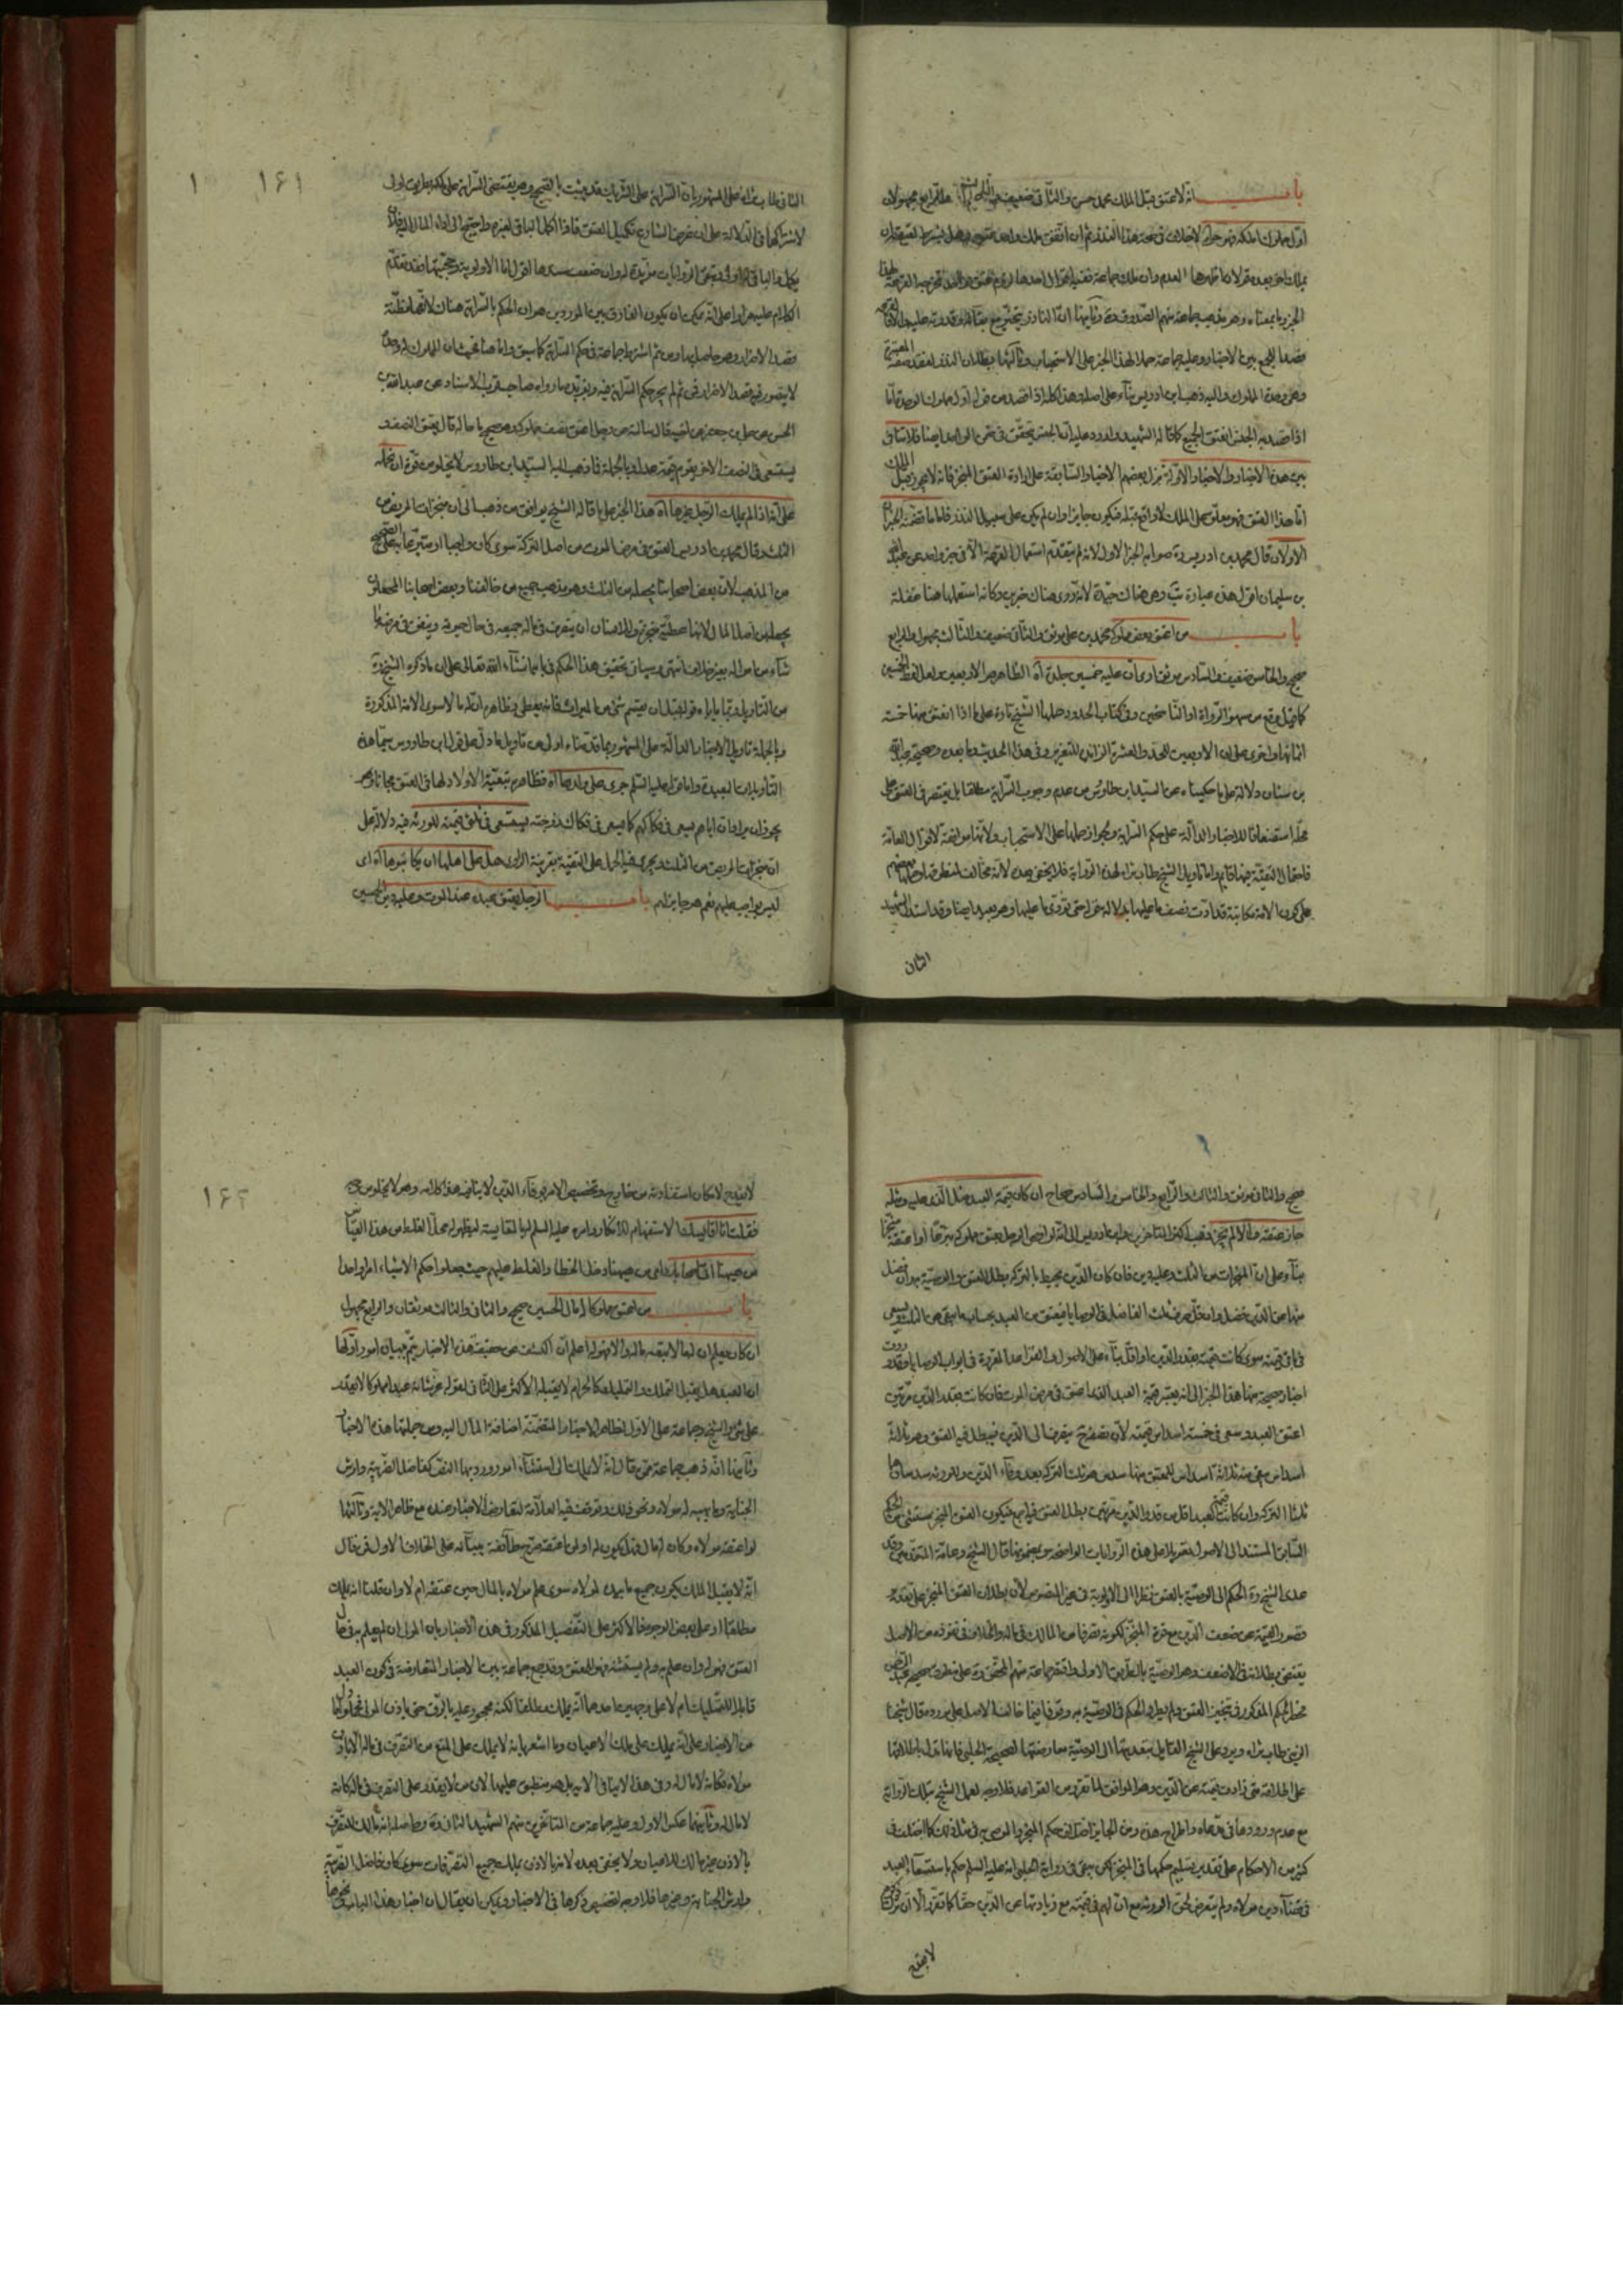 باب انه لا عتق قبل الملك محمد حسن والثانى ضعيف والرابع مجهول
اول مملوك املكه فهو حر لا خلاف فى صحة هذا النذر ثم ان اتفق ملك واحد
يملك اخر بعده قولان اظهرها العدم وان ملك جماعة ففيه اقوال احدها
الخبر وما بمعناه وهو مذهب جماعة منهم الصدوق وثانيها ان الناذر يتخير
قصدا للجمع بين الاخبار وعليه جماعة حملا لهذا الخبر على الاستحباب وثالثها بطلان النذر لفقد صفة
وهى وحدة المملوك واليه ذهب ابن ادريس بناء على اصله وهذا كله اذا قصد من قوله اول مملوك الوحدة اما
اذا قصد به الجنس انعتق الجميع كما قاله الشهيد
بين هذه الاخبار والاخبار الاولة نزل بعضهم الاخبار السابقة على ارادة العتق المنجز فانه لا يجوز قبل الملك
اما هذا العتق فهو معلق على الملك
الاولان قال محمد بن ادريس ره صوابه الخبر الاول لانه لم يتقدم استعمال القرعة الا فى خبر واحد عن عبد الله
بن سليمان اقول هذه عبارة يب وهى هناك جيدة لانه روى هناك خبرين وكانه استعملها هنا غفلة
باب من اعتق بعض مملوكه محمد بن على موثق والثانى ضعيف والثالث مجهول والرابع
صحيح والخامس ضعيف والسادس موثق ارى ان عليه خمسين جلدة اه الظاهر هو الاربعين ولعل لفظ الخمسين
كما قيل وقع من سهو الرواة او الناسخين وفى كتاب الحدود حملها الشيخ تارة على ما اذا انعتق منها خمسة
اثمانها واخرى على ان الاربعين للحد والعشرة الزائدة للتعزير وفى هذا الحديث وما بعده وصحيحة عبد الله
بن سنان دلالة على ما حكيناه عن السيد ابن طاوس من عدم وجوب السراية مطلقا بل يقتصر فى العتق على
محله استضعافا للاخبار الدالة على حكم السراية ويجوز حملها على الاستحباب ولانها موافقة لاقوال العامة
فاحتمال التقية فيها قايم واما تاويل الشيخ طاب ثراه لهذه الرواية فلا يخفى بعده لانه مخالف لمنطوقها وحملها بعضهم
على كون الامة مكاتبة قد ادت نصف ما عليها بدلالة قوله حتى تؤدى ما عليها وهو بعيد ايضا وقد استدل الشهيد
الثانى
١٦١
الثانى طاب ثراه على المشهور بان السراية على الشريك قد ثبتت بالصحيح وهو يقتضى السراية على ملكه بطريق اولى
لاشتراكهما فى الدلالة على ان غرض الشارع تكميل العتق فاذا اكمل الباقى لغيره واحتيج الى اداء المال اليه فلان
يكمل والباقى له اولى وتبقى الروايات مؤيدة له وان ضعف سندها اقول اما الاولوية وحجيتها فقد تقدم
الكلام عليه مرارا على انه يمكن ان يكون الفارق بين الموردين هو ان الحكم بالسراية هناك لانها مظنة
قصد الاضرار وهو حاصل بها ومن ثم اشترط جماعة فى حكم السراية كما سبق واما هنا فحيث ان المملوك له وحده
لا يتصور فيه قصد الاضرار فمن ثم لم يجر حكم السراية فيه ويؤيده ما رواه صاحب قرب الاسناد عن عبد الله بن
الحسن عن على بن جعفر عن اخيه قال سالته عن رجل اعتق نصف مملوكه وهو صحيح ما حاله قال يعتق النصف و
يستسعى فى النصف الاخر يقوم قيمة عدل وبالجملة فما ذهب اليه السيد ابن طاووس لا يخلو من قوة
على انه اذا لم يملك الرجل غيرها اه هذا الخبر على ما قاله الشيخ يوافق من ذهب الى ان منجزات المريض من
الثلث وقال محمد بن ادريس العتق فى مرض الموت من اصل التركة سوى كان واجبا او متبرعا به على الصحيح
من المذهب لان بعض اصحابنا يجعله من الثلث وهو مذهب جميع من خالفنا وبعض اصحابنا المحصلون
يجعله من اصل المال لانها عطية منجزة وللانسان ان يتصرف فى ماله جميعه فى حال حيوته وينفق فى مرضه ما
شاء من امواله بغير خلاف انتهى وسياتى تحقيق هذا الحكم فى بابه انشاء الله تعالى على ان ما ذكره الشيخ ره
من التاويل ربما ياباه قوله قبل ان يقسم شئ من الميراث
وبالجملة تاويل الاخبار الدالة على المشهور بما قدمناه اولى من تاويل ما دل على قول ابن طاووس سيما هذه
التاويلات البعيدة واما قوله عليه السلم جرى على ولدها اه فظاهره تبعية الاولاد لها فى العتق مجانا
يجوز ان يراد ان اباهم يسعى فى فكاكهم كما يسعى فى فكاك زوجته يستسعى فى ثلثى قيمته للورثة فيه دلالة على
ان منجزات المريض من الثلث ويجرى فيه الحمل على التقية بقرينة الراوى هل على اهلها ان يكاتبوها اه اى
ليس بواجب عليهم نعم هو جايز لهم باب الرجل يعتق عبده عند الموت وعليه دين الحسين
صحيح والثانى موثق والثالث والرابع والخامس والسادس صحاح ان كان قيمة العبد مثل الذى عليه ومثله
جاز عتقه والا لم يجز ذهب اكثر المتاخرين وابن ادريس الى انه لو اوصى الرجل بعتق مملوكه تبرعا او اعتقه منجزا
بناء على ان المنجزات من الثلث وعليه دين فان كان الدين يحيط بالتركة بطل العتق والوصية به وان فضل
منها عن الدين فضل وان قل صرف ثلث الفاضل فى الوصايا فيعتق من العبد بحساب ما يبقى من الثلث ويسعى
فى باقى قيمته سوى كانت قيمته بقدر الدين او اقل بناء على الاصول والقواعد المقررة فى ابواب الوصايا وقد وردت
اخبار صحيحة منها هذا الخبر الى انه يعتبر قيمة العبد الذى اعتق فى مرض الموت فان كانت بقدر الدين مرتين
اعتق العبد وسعى فى خمسة اسداس قيمته لان نصفه ح ينصرف الى الدين فيبطل فيه العتق وهو ثلاثة
اسداس يبقى منه ثلاثة اسداس للمعتق منها سدس هو ثلث التركة بعد وفاء الدين وللورثة سدسان هما
ثلثا التركة وان كانت قيمة العبد اقل من قدر الدين مرتين بطل العتق فيه اجمع فيكون العتق المنجز مستثنى من الحكم
السابق المستند الى الاصول تعويلا على هذه الروايات الواضحة وبمضمونها قال الشيخ وعامة المتقدمين وقد
عدى الشيخ ره الحكم الى الوصية بالعتق نظرا الى الاولوية فى غير المنصوص لان بطلان العتق المنجز على تقدير
قصور القيمة عن ضعف الدين مع قوة المنجز لكونه تصرفا من المالك فى ماله والخلاف فى نفوذه من الاصل
يقتضى بطلانه فى الاضعف وهو الوصية بالطريق الاولى واقتصر جماعة منهم المحقق ره على منطوق صحيحة
فخص الحكم المذكور فى تنجيز العتق ولم يطرد الحكم فى الوصية به وقوفا فيما خالف الاصل على مورده قال شيخنا
الزينى طاب ثراه ويرد على الشيخ القايل بتعديتها الى الوصية معارضتها لصحيحة الحلبى فانها تدل باطلاقها
على انطلاقه متى زادت قيمته عن الدين وهو الموافق لما تقرر من القواعد فلا وجه لعمل الشيخ بتلك الرواية
مع عدم ورودها فى مدعاه واطراح هذه ومن الجايز اختلاف حكم المنجز والموصى به فى مثل ذلك كما اختلف فى
كثير من الاحكام على تقدير تسليم حكمها فى المنجز لكن يبقى فى رواية الحلبى انه عليه السلم حكم باستسعاء العبد
فى قضاء دين مولاه ولم يتعرض لحق الورثة مع ان لهم فى قيمته مع زيادتها عن الدين حقا كما تقرر الا ان ترك
لا يقدح
١٦٢
لا يقدح لامكان استفادته من خارج وتخصيص الامر بوفاء الدين لا ينافيه هذا كلامه وهو لا يخلو من جودة
من هيهنا اتى اصحابك اى من هيهنا دخل الخطا والغلط عليهم حيث جعلوا حكم الاشياء امرا واحدا
باب من اعتق مملوكا له مال الحسين صحيح والثانى والثالث موثقان والرابع مجهول
ان كان يعلم ان له مالا تبعه ماله والا فهو له اعلم ان الكشف عن حقيقة هذه الاخبار يتم ببيان امور اولها
ان العبد هل يقبل التملك والتمليك كالحر ام لا يقبله الاكثر على الثانى لقوله عز شانه عبدا مملوكا لا يقدر
على شئ والشيخ وجماعة على الاول لظاهر الاخبار المتضمنة اضافة المال اليه ومن جملتها هذه الاخبار
وثانيها انه ذهب جماعة ممن قال انه لا يملك الى استثناء امور ورد بها النص كفاضل الضريبة وارش
الجناية وما يهبه له مولاه ونحو ذلك وتوقف فيه العلامة لتعارض الاخبار عنده مع ظاهر الاية وثالثها
لو اعتقه مولاه وكان له مال فهل يكون له او لمن اعتقه صرح طائفة ببنائه على الخلاف الاول فمن قال
انه لا يقبل الملك يكون جميع ما بيده لمولاه سوى علم مولاه بالمال حين عتقه ام لا وان قلنا انه يملك
مطلقا او على بعض الوجوه فالاكثر على التفصيل المذكور فى هذه الاخبار بان المولى ان لم يعلم به فى حال
العتق فهو له وان علم به ولم يستثنه فهو للمعتق وقد جمع جماعة بين الاخبار المتعارضة فى كون العبد
قابلا للتمليك ام لا على وجهين احدهما انه يملك مطلقا لكنه محجور عليه بالرق حتى ياذن المولى فحملوا ما
من الاخبار على انه يملك على ملك الاعيان وما اشعر بانه لا يملك على المنع من التصرف فى ماله الا باذن
مولاه فكانه لا مال له وفى هذا لا ينافى الاية بل هو منطبق عليها لان من لا يقدر على التصرف فى ماله كانه
لا مال له وثانيهما عكس الاول وعليه جماعة من المتاخرين منهم الشهيد الثانى ره وحاصله انه مالك للتصرف
بالاذن غير مالك للاعيان ولا يخفى بعده لانه بالاذن يملك جميع التصرفات سوى كان فاضل الضريبة
وارش الجناية وغيرها فلا وجه لتخصيص ذكرها فى الاخبار ويمكن ان يقال ان اخبار هذا الباب ونحوها